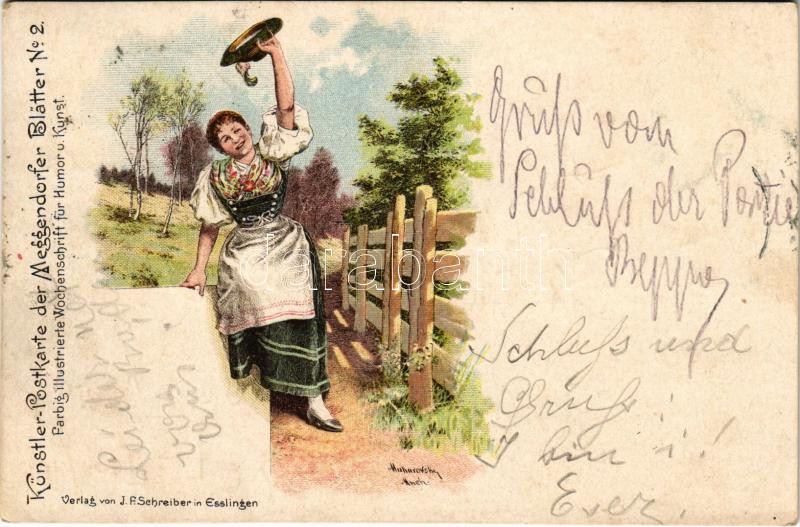 Künstler-Postkarte der Meggendorfer Blätter No 2.
Farbig illustrierte Wochenschrift für Humor u. Kunst.
Gruß vom
Schluß der Partie
Beppo
Schluss und
Gruß
Muharovsky
Mnch.
Verlag von J. F. Schreiber in Esslingen
darabanth